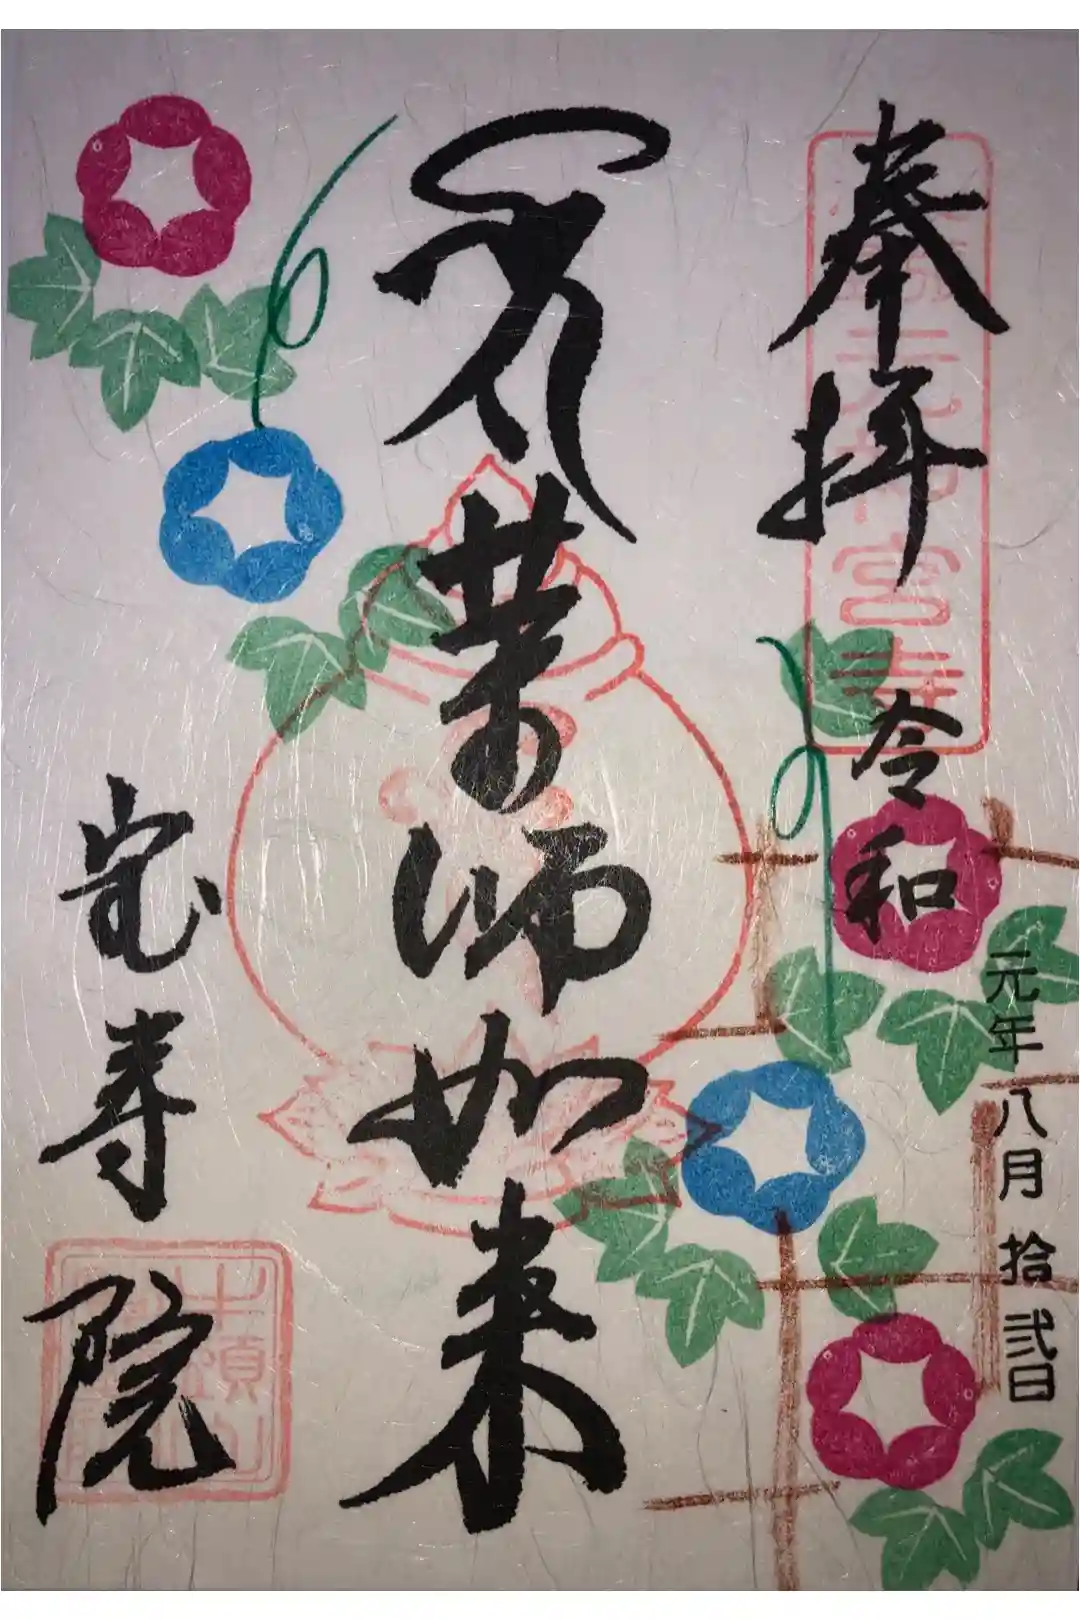 奉拝
令和元年八月拾弐日
薬師如来
宝寿院